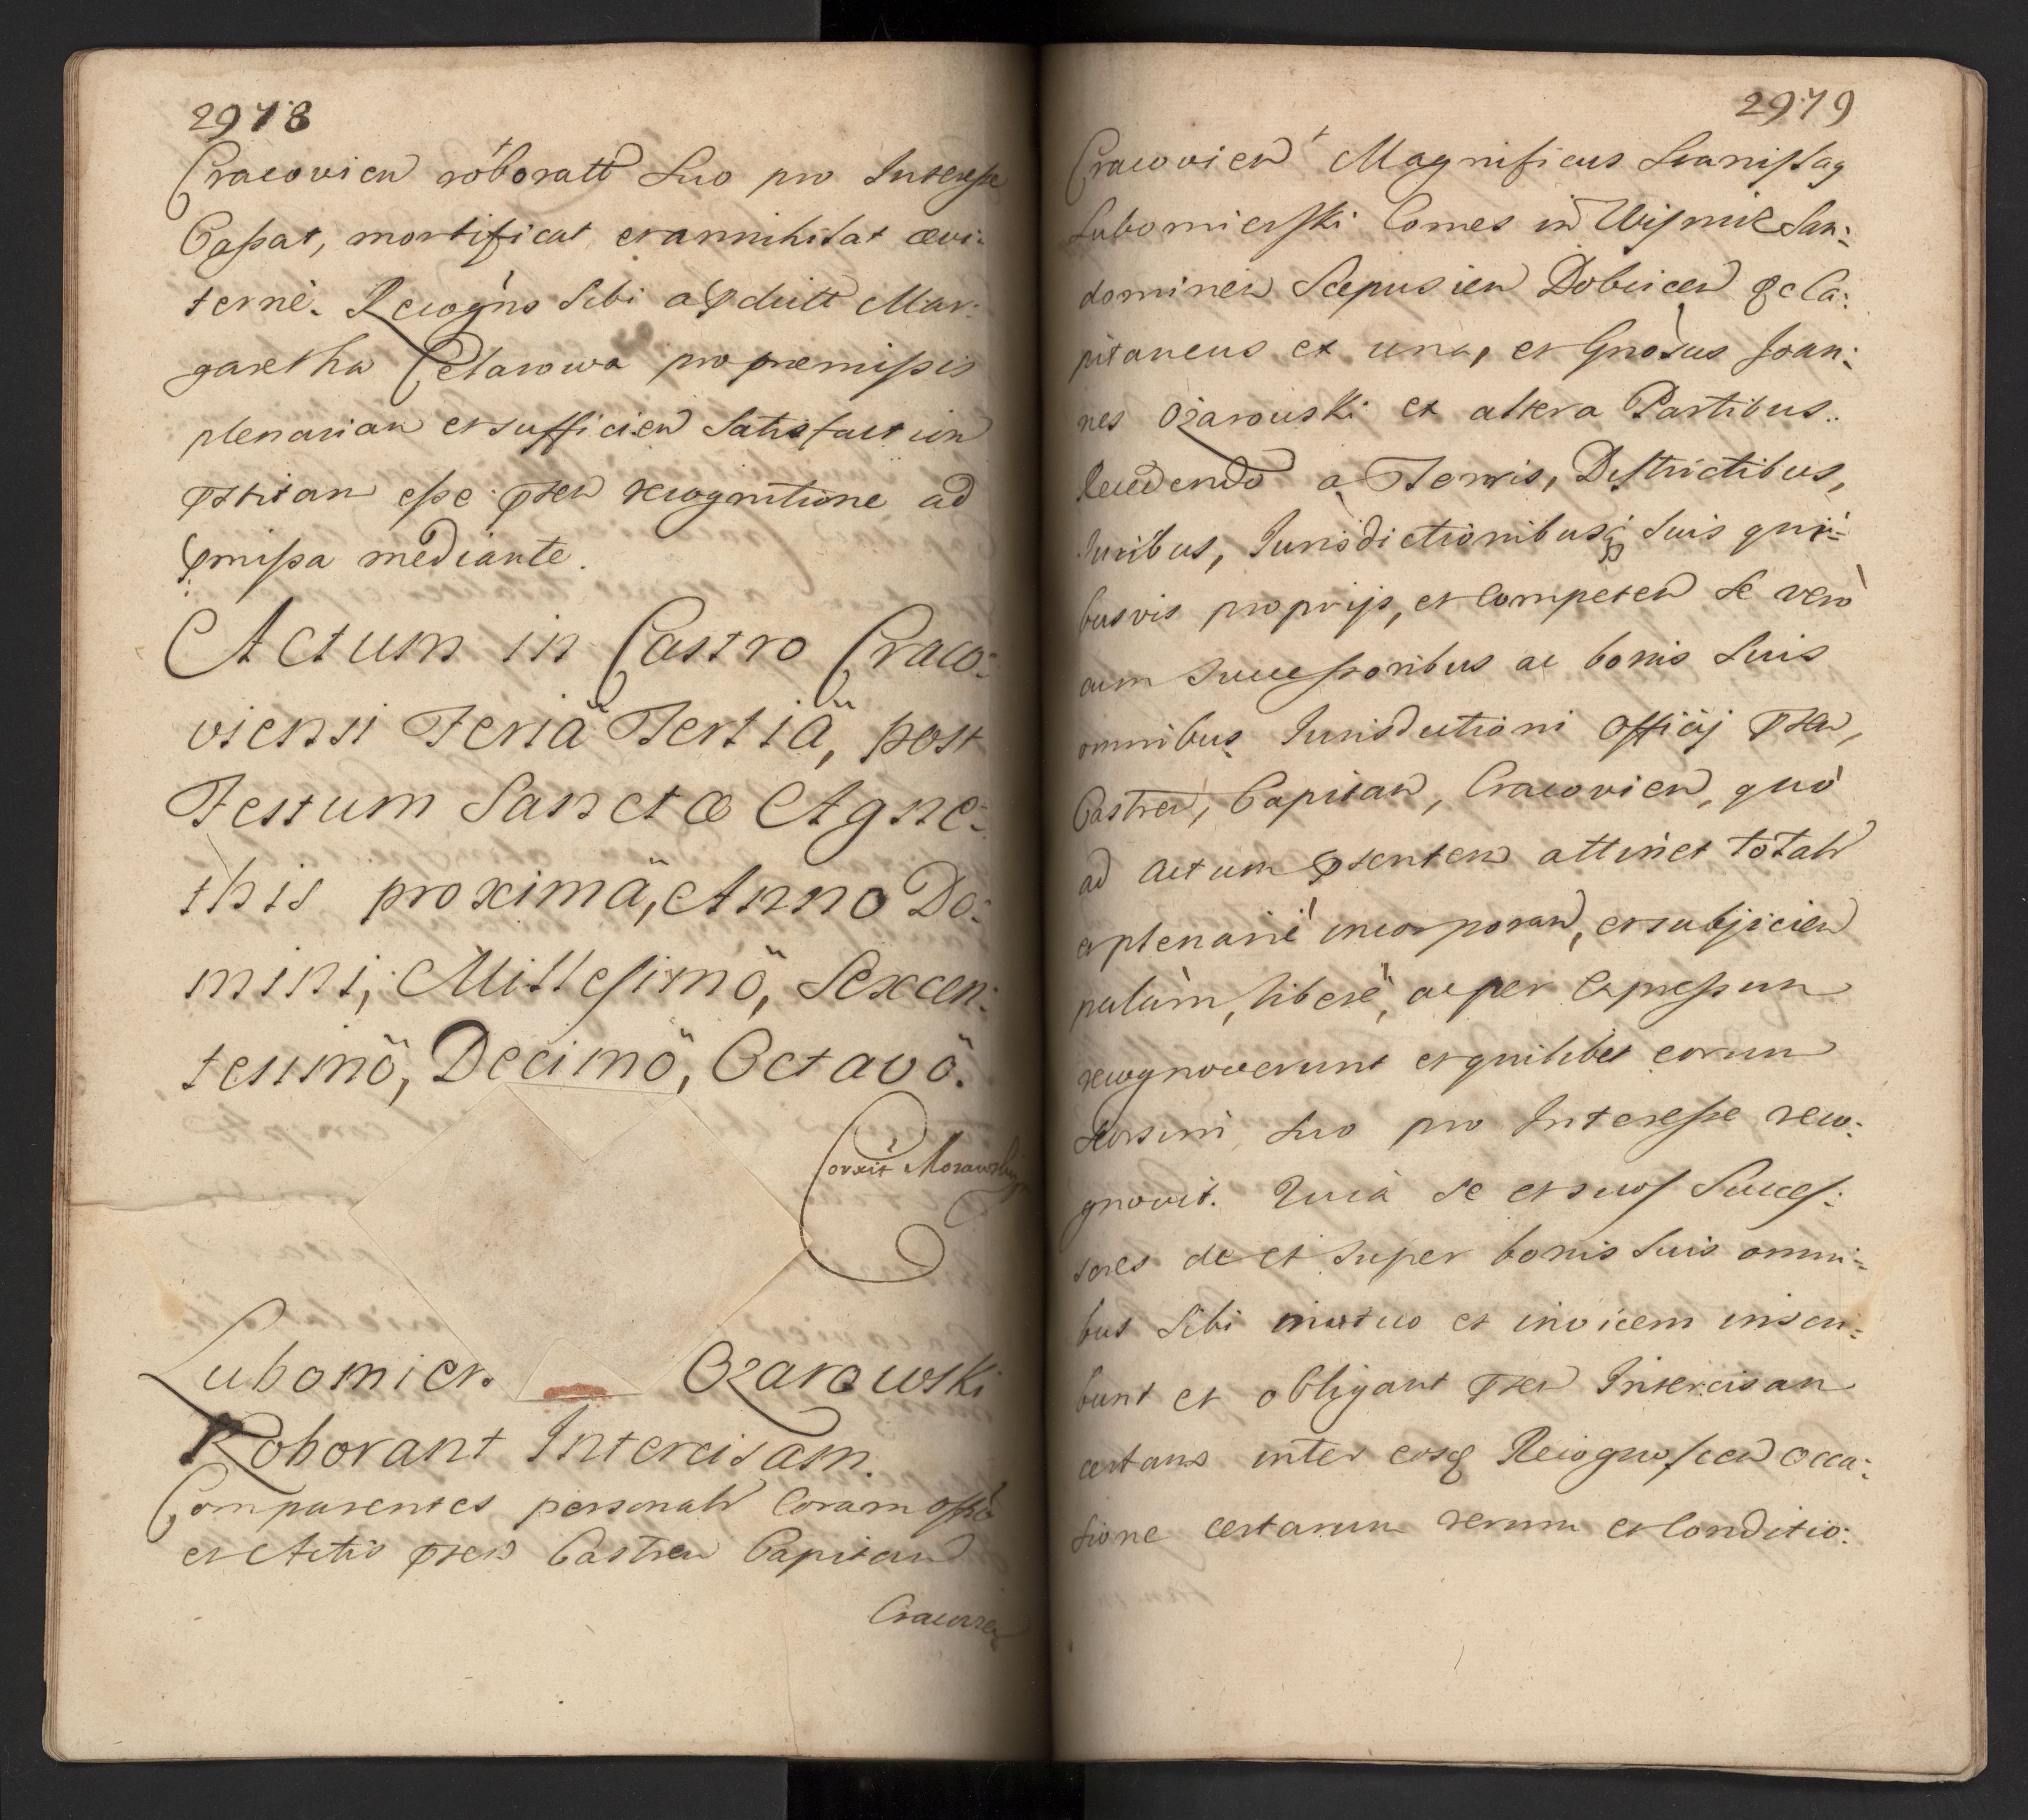 2978
Cracovien roboratt Suo pro Interesse
Cassat, mortificat, et annihilat ævi-
terné. Recogno Sibi a pdictt Mar-
garetha Petarowa pro præmissis
plenarian et sufficien Satisfaction
pstitan esse pten recognitione ad
pmissa mediante.
Actum in Castro Craco-
viensi Feriä Tertiä, post
Festum Sanctæ Agne-
this proximä, Anno Do-
mini, Millesimö, Sexcen-
tesimö, Decimö, Octavö.
Corxit Morawski
Lubomier. Ozarowski
Roborant Intercisam.
Comparentes personalr Coram offo
et Actis pten Castren Capitan
Cracovien
2979
Cracovien Magnificus Stanislaq
Lubomierski Comes in Wisnicz San-
domirien Scepusien Dobcicen &c Ca-
pitaneus ex una, et Gnosus Joan-
nes Ozarowski ex altera Partibus.
Recedendo a Terris, Districtibus,
Iuribus, Iurisdictionibusq Suis qui-
busvis proprijs, et Competen Se vero
cum Successoribus ac bonis Suis
omnibus Iurisdictioni Officij pten,
Castren, Capitan, Cracovien, quó
ad actum psentem attinet totalr
et plenarié incorporan, et subjicien
palàm, liberé, ac per expressum
recognoverunt et quilibet eorum
seorsim Suo pro Interesse reco-
gnovit. Quia Se et suos Succes-
sores de et super bonis Suis omni-
bus Sibi mutuo et invicem inscri-
bunt et obligant pten Intercisan
certam inter eosq Recognoscen occa-
sione certarum rerum et Conditio-